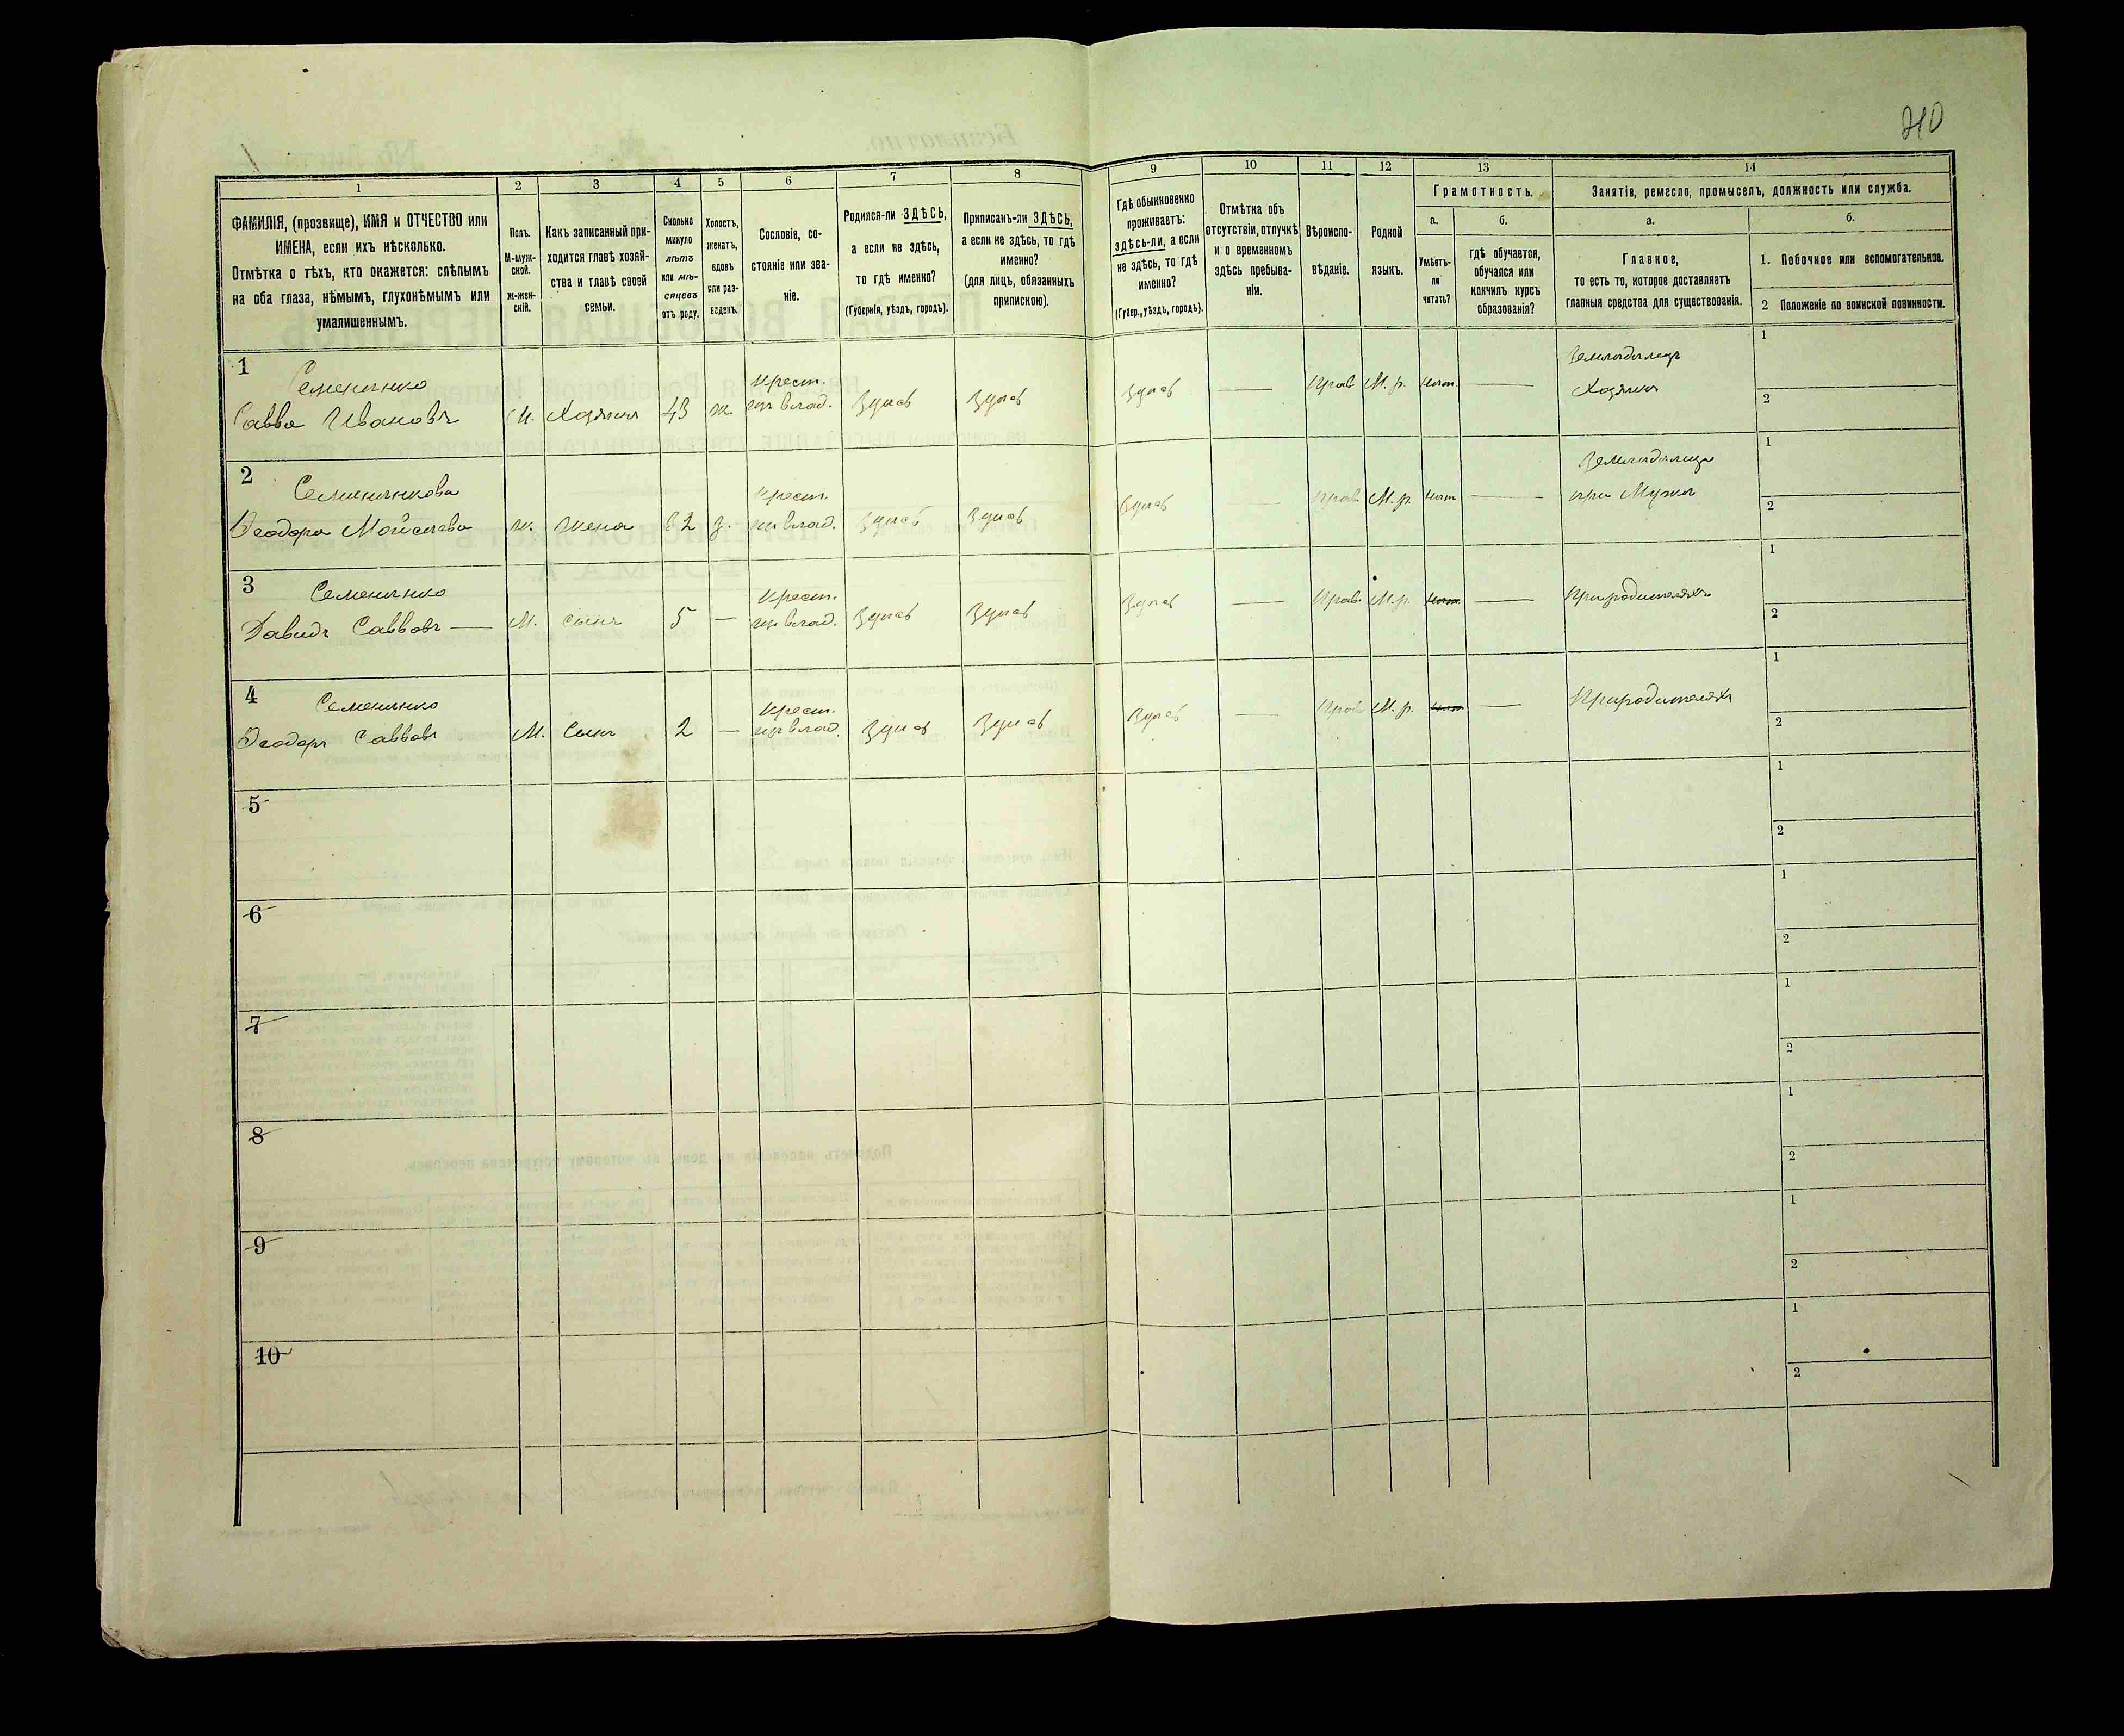 210
1
2
3
4
5
6
7
8
9
10
11
12
13
14
ФАМИЛІЯ, (прозвище), ИМЯ и ОТЧЕСТВО или
ИМЕНА, если ихъ нѣсколько.
Отмѣтка о тѣхъ, кто окажется: слѣпымъ
на оба глаза, нѣмымъ, глухонѣмымъ или
умалишеннымъ.
Полъ.
М-муж-
ской.
Ж-жен-
скій.
Какъ записанный при-
ходится главѣ хозяй-
ства и главѣ своей
семьи.
Сколько
минуло
лѣтъ
или мѣ-
сяцевъ
отъ роду.
Холостъ,
женатъ,
вдовъ
или раз-
веденъ.
Сословіе, со-
стояніе или зва-
ніе.
Родился-ли ЗДѢСЬ,
а если не здѣсь,
то гдѣ именно?
(Губернія, уѣздъ, городъ).
Приписанъ-ли ЗДѢСЬ,
а если не здѣсь, то гдѣ
именно?
(для лицъ, обязанныхъ
припискою).
Гдѣ обыкновенно
проживаетъ:
здѣсь-ли, а если
не здѣсь, то гдѣ
именно?
(Губер., уѣздъ, городъ).
Отмѣтка объ
отсутствіи, отлучкѣ
и о временномъ
здѣсь пребыва-
ніи.
Вѣроиспо-
вѣданіе.
Родной
языкъ.
Грамотность.
а.
Умѣетъ-
ли
читать?
б.
гдѣ обучается,
обучался или
кончилъ курсъ
образованія?
Занятія, ремесло, промыселъ, должность или служба.
а.
Главное,
то есть то, которое доставляетъ
главныя средства для существованія.
б.
1. Побочное или вспомогательное.
2 Положеніе по воинской повинности.
1
Семененко
Савва Ивановъ
М. Хозяинъ 43 ж. Крест. влад. Здѣсь Здѣсь Здѣсь — Прав. М. р. — Земледѣлецъ Хозяинъ
1
2
2
Семененкова
Ѳеодора
ж. жена Крест. влад. Здѣсь Здѣсь Здѣсь — Прав. М. р. — при Мужѣ
1
2
3
Семененко
Давидъ Саввовъ —
М. сынъ 5 — Крест. влад. Здѣсь Здѣсь Здѣсь — Прав. М. р. — При родителяхъ
1
2
4
Семененко
Ѳеодоръ Саввовъ
М. Сынъ 2 — Крест. влад. Здѣсь Здѣсь Здѣсь — Прав. М. р. — При родителяхъ
1
2
5
1
2
6
1
2
7
1
2
8
1
2
9
1
2
10
1
2